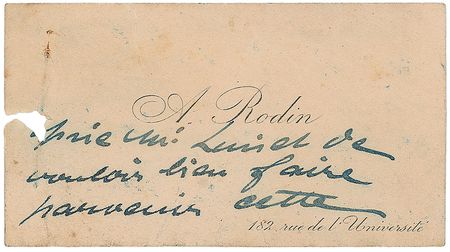 A. Rodin
prie Mr. de
vouloir bien faire
parvenir cette
182, rue de l'Université